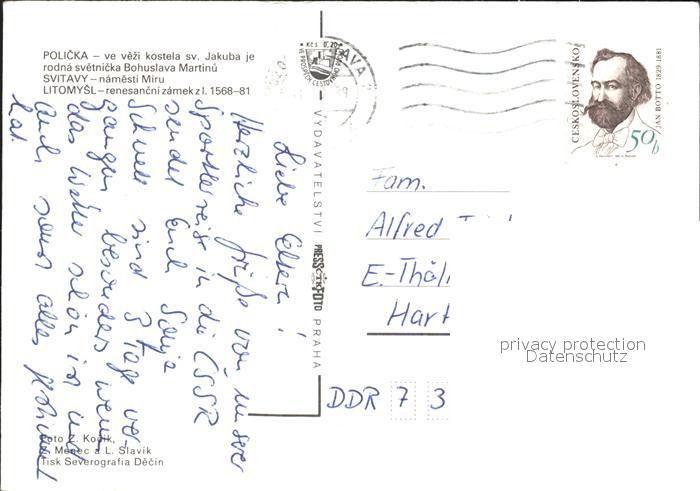 POLIČKA – ve věži kostela sv. Jakuba je
rodná světnička Bohuslava Martinů
SVITAVY – náměstí Míru
LITOMYŠL – renesanční zámek z l. 1568–81
Liebe Eltern!
Herzliche Grüße von unserer
Sportlerreise in die ČSSR
sendet Euch Sonja
Schnell sind 3 Tage ver-
gangen, besonders wenn
das Wetter schön ist und
auch sonst alles geklappt
hat.
Foto Z. Kodík,
Menec a L. Slavík
Tisk Severografia Děčín
VYDAVATELSTVÍ PRESSFOTO PRAHA
Kčs 0,20
AVA
ČESKOSLOVENSKO
JÁN BOTTO 1829-1881
50h
Fam.
Alfred
E.-Thäl
Hart
DDR 7 3
privacy protection
Datenschutz